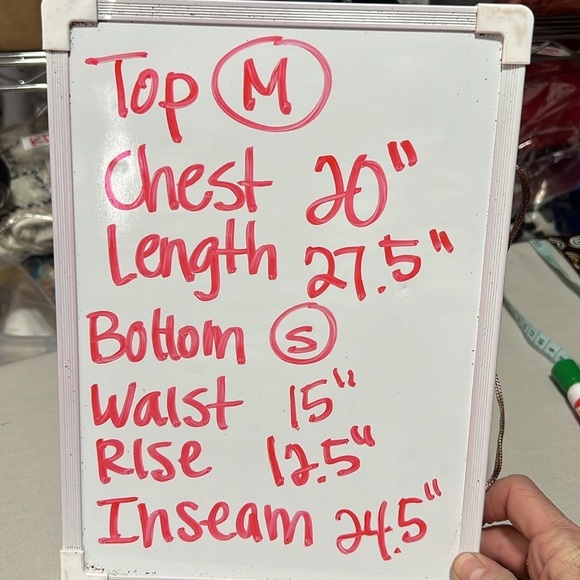 Top M
Chest 20"
Length 27.5"
Bottom S
Waist 15"
Rise 12.5"
Inseam 24.5"